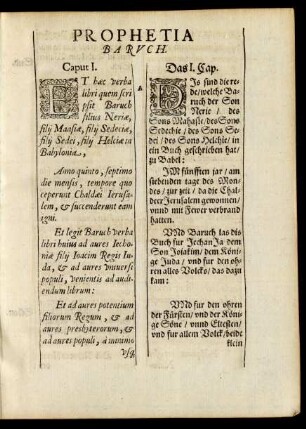 PROPHETIA
BARVCH.
Caput I.
ET hæc verba
libri quem scri
psit Baruch
filius Neriæ,
filij Maasiæ, filij Sedeciæ,
filij Sedei, filij Helciæ in
Babylonia.,
Anno quinto, septimo
die mensis, tempore quo
ceperunt Chaldæi Ierusa-
lem, & succenderunt eam
igni.
Et legit Baruch verba
libri huius ad aures Iecho-
niæ filij Ioacim Regis Iu-
da, & ad aures vniuersi
populi, venientis ad audi-
endum librum:
Et ad aures potentium
filiorum Regum, & ad
aures presbyterorum, &
ad aures populi, à minimo
vsq́;
Das I. Cap.
DIs sind die re-
de/welche Ba-
ruch der Son
Nerie/ des
Sons Mahasie/des Sons
Sedechie/ des Sons Se-
dei/des Sons Helchie/ in
ein Buch geschrieben hat/
zu Babel:
IM fünfften jar/ am
siebenden tage des Mon-
des/ zur zeit/ da die Chal-
deer Jerusalem gewonnen/
vnnd mit Fewer verbrand
hatten.
VNd Baruch las dis
Buch fur JechanJa dem
Son Joiakim/ dem Köni-
ge Juda/ vnd fur den oh-
ren alles Volcks/das dazu
kam:
VNd fur den ohren
der Fürsten/vnd der Köni-
ge Söne/ vnnd Eltesten/
vnd fur allem Volck/beide
klein